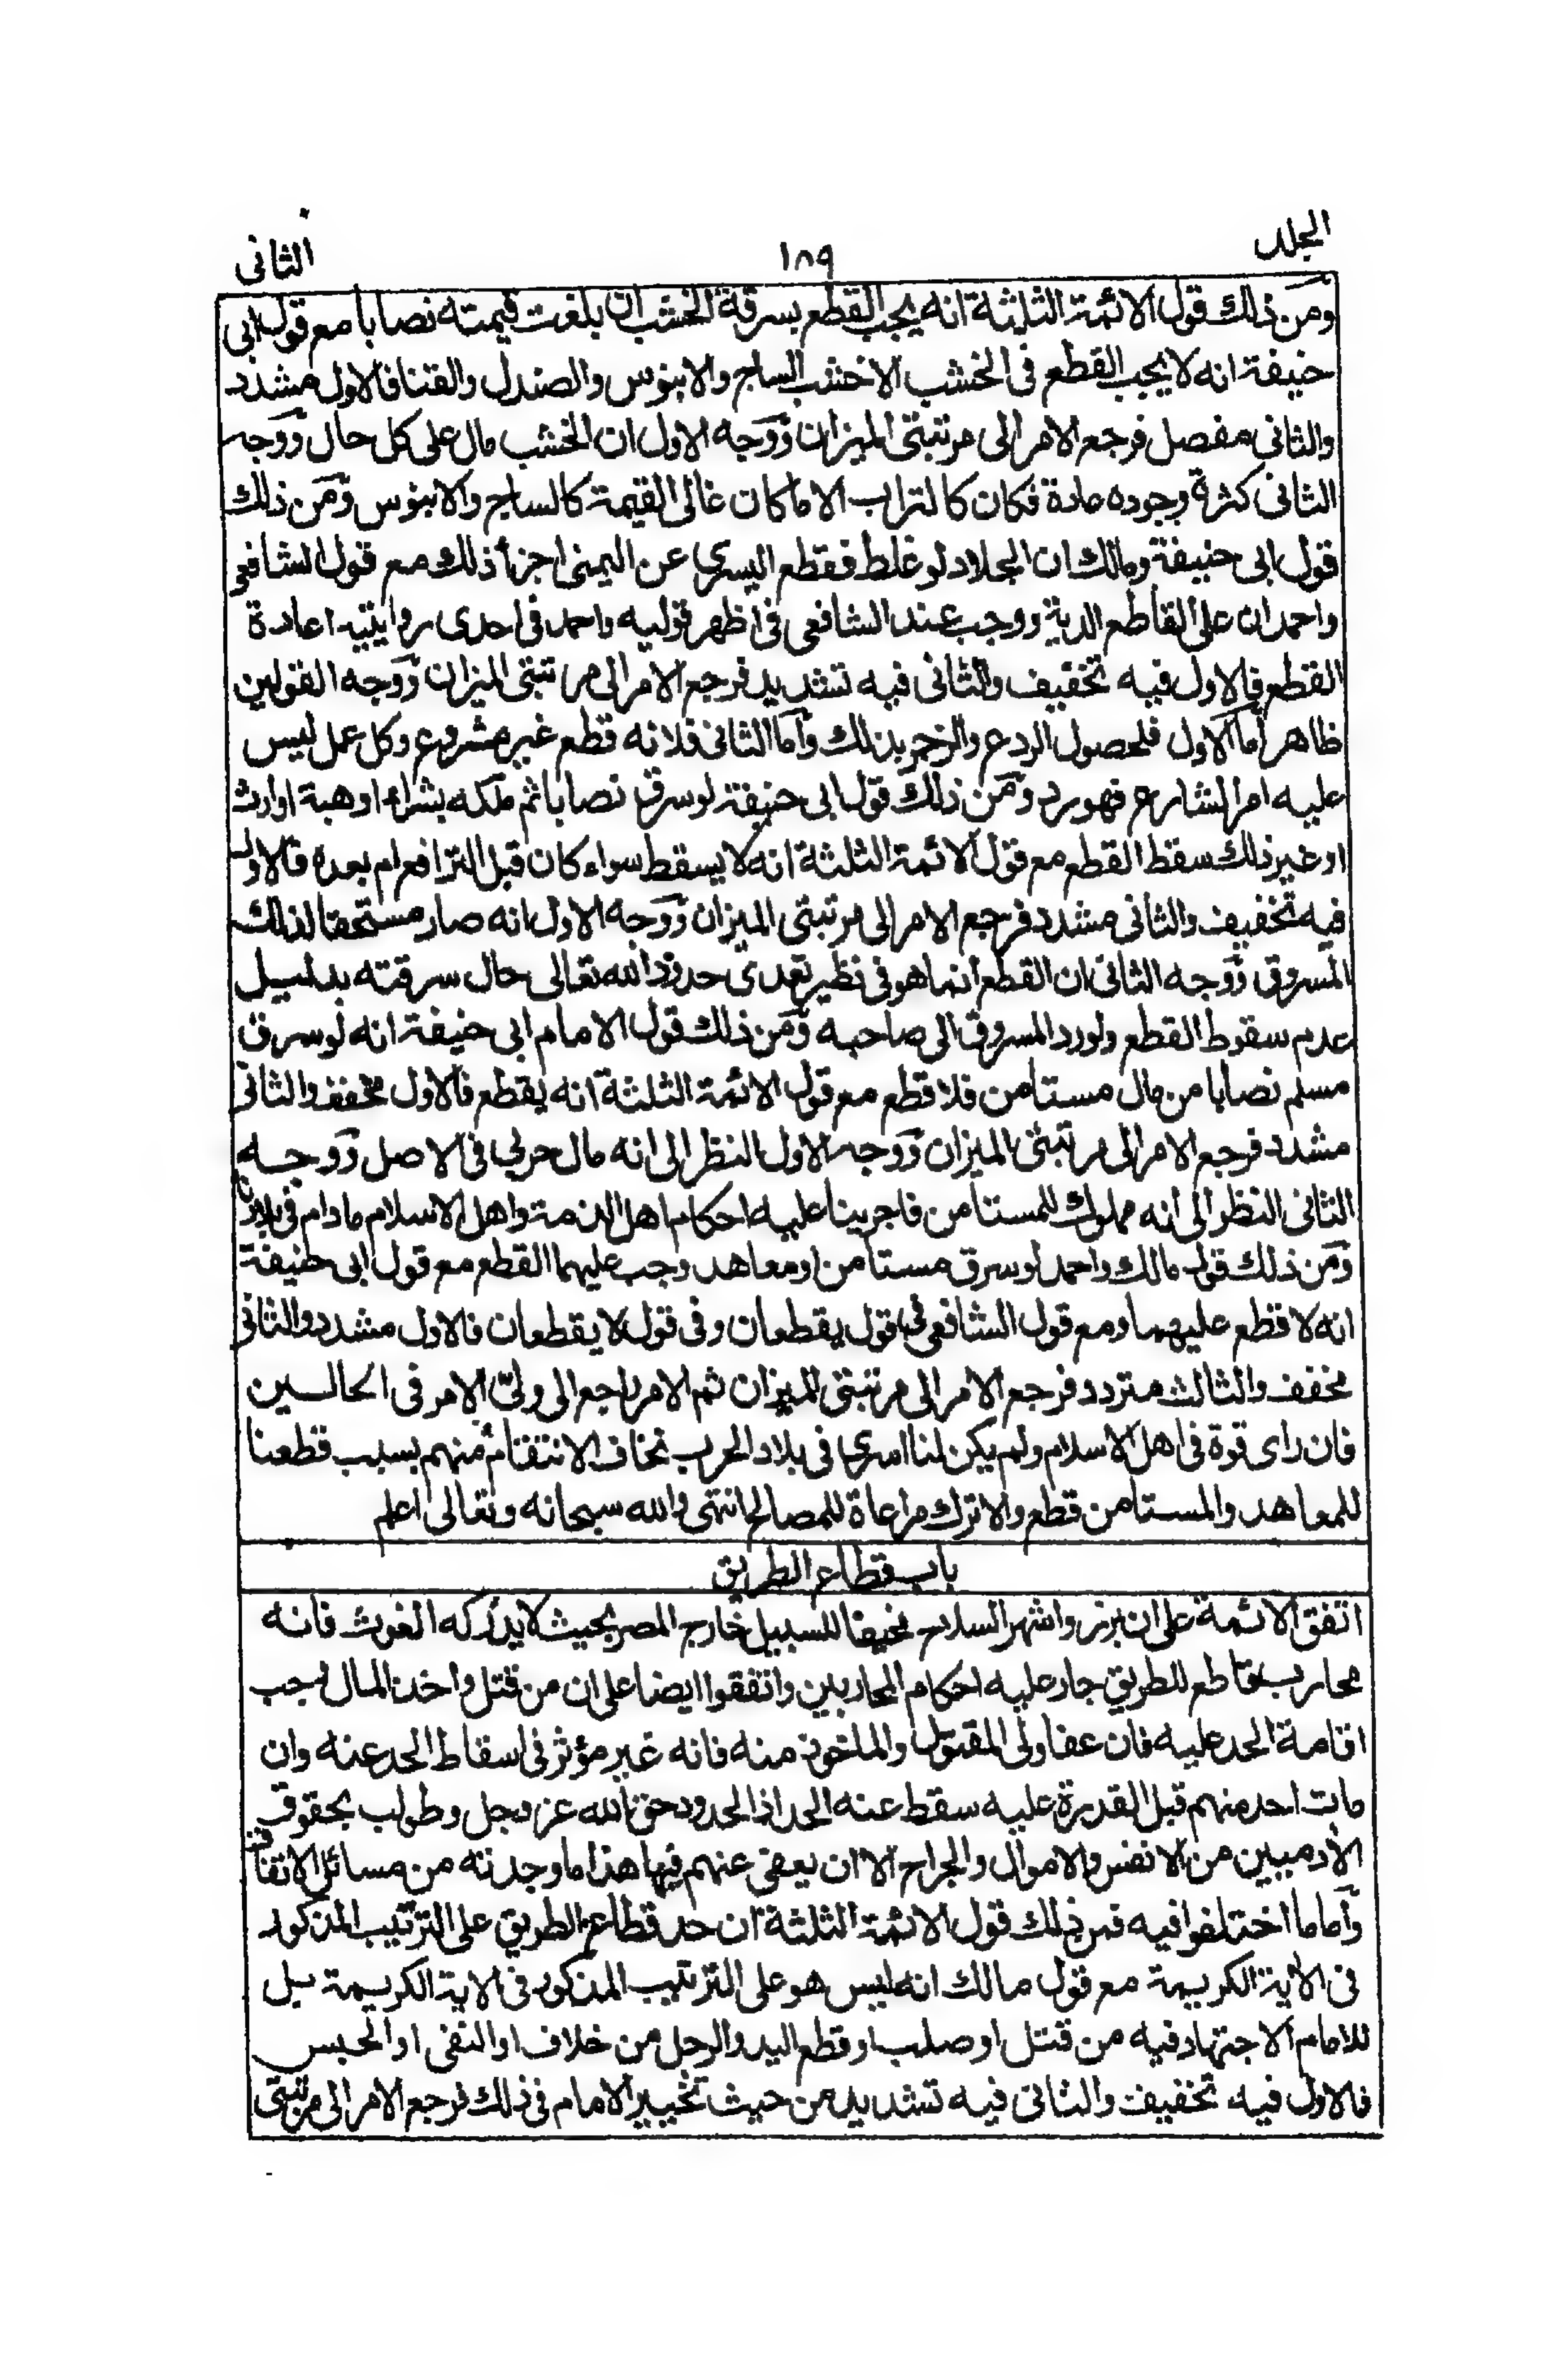 الجلد ١٨٩ الثانى
ومن ذلك قول الائمة الثلثة انه يجب القطع بسرقة الخشب ان بلغت قيمته نصابا مع قول ابى
حنيفة انه لا يجب القطع فى الخشب الا خشب الساج والابنوس والصندل والقنا فالاول مشدد
والثانى مفصل فرجع الامر الى مرتبتى الميزان ووجه الاول ان الخشب مال على كل حال ووجه
الثانى كثرة وجوده عادة فكان كالتراب الا ما كان غالى القيمة كالساج والابنوس ومن ذلك
قول ابى حنيفة ومالك ان الجلاد لو غلط فقطع اليسرى عن اليمنى اجزأ ذلك مع قول الشافعى
واحمد ان على القاطع الدية ووجب عند الشافعى فى اظهر قوليه واحمد فى احدى روايتيه اعادة
القطع فالاول فيه تخفيف والثانى فيه تشديد فرجع الامر الى مرتبتى الميزان ووجه القولين
ظاهر أما الاول فلحصول الردع والزجر بذلك وأما الثانى فلانه قطع غير مشروع وكل عمل ليس
عليه امر الشارع فهو رد ومن ذلك قول ابى حنيفة لو سرق نصابا ثم ملكه بشراء او هبة او ارث
او غير ذلك سقط القطع مع قول الائمة الثلثة انه لا يسقط سواء كان قبل الترافع ام بعده فالاول
فيه تخفيف والثانى مشدد فرجع الامر الى مرتبتى الميزان ووجه الاول انه صار مستحقا لذلك
المسروق ووجه الثانى ان القطع انما هو فى نظير تعدى حدود الله تعالى حال سرقته بدليل
عدم سقوط القطع ولو رد المسروق الى صاحبه ومن ذلك قول الامام ابى حنيفة انه لو سرق
مسلم نصابا من مال مستامن فلا قطع مع قول الائمة الثلثة انه يقطع فالاول مخفف والثانى
مشدد فرجع الامر الى مرتبتى الميزان ووجه الاول النظر الى انه مال حربى فى الاصل ووجه
الثانى النظر الى انه مملوك للمستامن فاجرينا عليه احكام اهل الذمة واهل الاسلام ما دام فى بلادنا
ومن ذلك قول مالك واحمد لو سرق مستامن او معاهد وجب عليهما القطع مع قول ابى حنيفة
انه لا قطع عليهما ومع قول الشافعى فى قول يقطعان وفى قول لا يقطعان فالاول مشدد والثانى
مخفف والثالث متردد فرجع الامر الى مرتبتى الميزان ثم الامر راجع الى ولىّ الامر فى الحالين
فان راى قوة فى اهل الاسلام ولم يكن لنا اسرى فى بلاد الحرب نخاف الانتقام منهم بسبب قطعنا
للمعاهد والمستامن قطع والا ترك مراعاة للمصالح انتهى والله سبحانه وتعالى اعلم
باب قطاع الطريق
اتفق الائمة على ان برز واشهر السلاح مخيفا للسبيل خارج المصر بحيث لا يدركه الغوث فانه
محارب قاطع للطريق جار عليه احكام المحاربين واتفقوا ايضا على ان من قتل واخذ المال وجب
اقامة الحد عليه فان عفا ولى المقتول والماخوذ منه فانه غير مؤثر فى اسقاط الحد عنه وان
مات احد منهم قبل القدرة عليه سقط عنه الحد اذ الحدود حق الله عز وجل وطولب بحقوق
الآدميين من الانفس والاموال والجراح الا ان يعفى عنهم فيها هذا ما وجدته من مسائل الاتفاق
وأما ما اختلفوا فيه فمن ذلك قول الائمة الثلثة ان حد قطاع الطريق على الترتيب المذكور
فى الآية الكريمة مع قول مالك انه ليس هو على الترتيب المذكور فى الاية الكريمة بل
للامام الاجتهاد فيه من قتل او صلب او قطع اليد والرجل من خلاف او النفى او الحبس
فالاول فيه تخفيف والثانى فيه تشديد من حيث تخيير الامام فى ذلك فرجع الامر الى مرتبتى